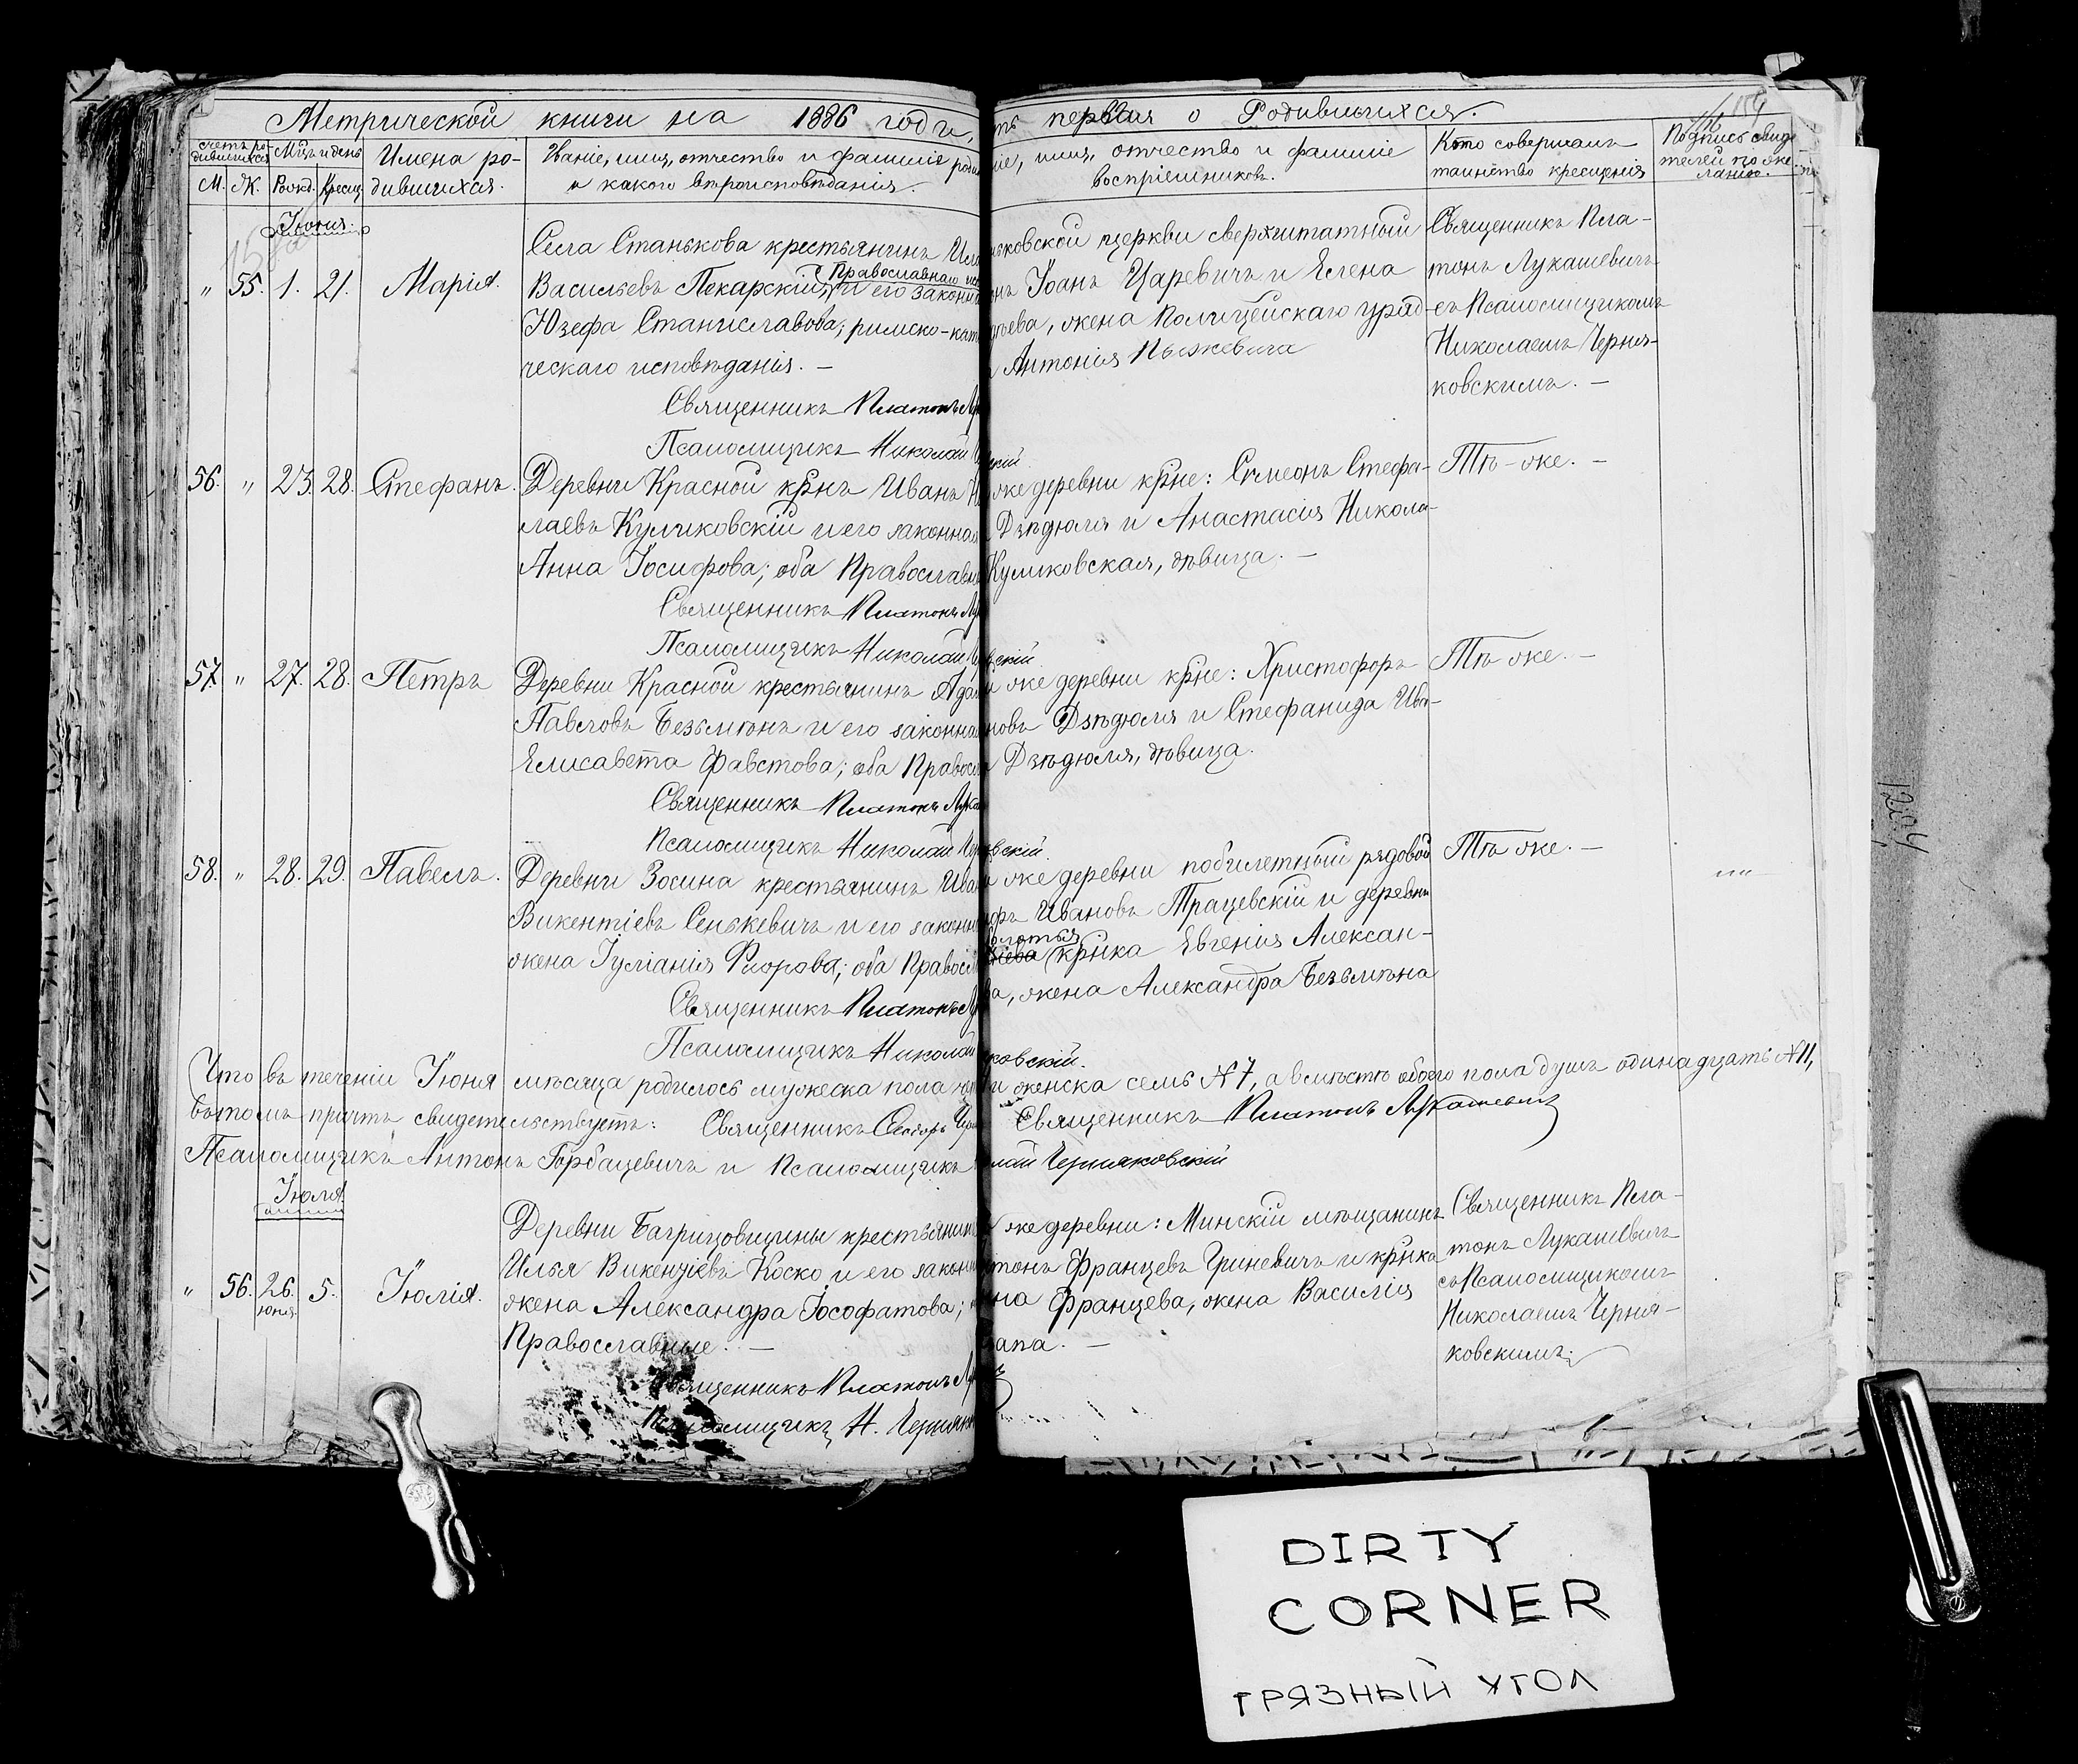 Метрической книги на 1886 годъ,
первая о Родившихся.
154
Счетъ ро-
дившихся
Мцъ и день
Имена ро-
дившихся.
Званіе, имя, отчество и фамилія
и какого вѣроисповѣданія.
имя, отчество и фамиліе
воспріемниковъ.
Кто совершалъ
таинство крещенія
Подпись свиде
телей по же
ланію.
М. Ж. Рожд. Крещ.
Іюня.
" 55. 1. 21. Марія.
Села Станькова крестьянинъ
Васильевъ Пекарскій, Православнаго и его законн
Юзефа Станиславова; римско-кат
ческаго исповѣданія. —
Священникъ Платонъ
Псаломщикъ Николай
ьковской церкви сверхштатный
Іоанъ Царевичъ и Елена
ьева, жена Полицейскаго уряд-
Антонія Пыжевича
Священникъ Пла-
тонъ Лукашевичъ
съ Псаломщикомъ
Николаемъ Черня-
ковскимъ. —
56. " 23. 28. Стефанъ.
Деревни Красной крнъ Иванъ
лаевъ Куликовскій и его законная
Анна Іосифова; оба Православн
Священникъ Платонъ
Псаломщикъ Николай
же деревни крне: Симеонъ Стефа-
Дзѣдюля и Анастасія Никола-
Куликовская, дѣвица. —
Тѣ-же. —
57. " 27. 28. Петръ
Деревни Красной крестьянинъ Адам
Павловъ Безмѣнъ и его законна
Елисавета Фавстова; оба Правосл
Священникъ Платонъ Лука
Псаломщикъ Николай
же деревни крне: Христофоръ
новъ Дзѣдюля и Стефанида Ива-
Дзѣдюля, дѣвица.
Тѣ же. —
58. " 28. 29. Павелъ.
Деревни Зосина крестьянинъ Иван
Викентіевъ Сенькевичъ и его законн
жена Іуліанія Флорова; оба Правосл
Священникъ Платонъ
Псаломщикъ Николай
же деревни побилетный рядовой
Ивановъ Трацевскій и деревни
крнка Евгенія Александ-
ва, жена Александра Безмѣна
Тѣ же. —
ковскій.
Что въ теченіи Іюня мѣсяца родилось мужеска пола и женска семь №7, а вмѣстѣ обоего пола душъ одинадцать №11,
въ томъ причтъ свидетельствуетъ: Священникъ Ѳеодоръ Священникъ Платонъ Лукашевичъ
Псаломщикъ Антонъ Горбацевичъ и Псаломщикъ лай Черняковскій
Іюля.
" 56. 26. 5. Іюлія.
іюня
Деревни Багриновщины крестьянинъ
Илья Викенціевъ Коско и его законн
жена Александра Іософатова;
Православные. —
Священникъ Платонъ
Псаломщикъ Н. Черняк
же деревни: Минскій мѣщанинъ
тонъ Францевъ Гриневичъ и крнка
на Францева, жена Василія
апа. —
Священникъ Пла-
тонъ Лукашевичъ
съ Псаломщикомъ
Николаемъ Черня-
ковскимъ.
1204
DIRTY
CORNER
ГРЯЗНЫЙ УГОЛ